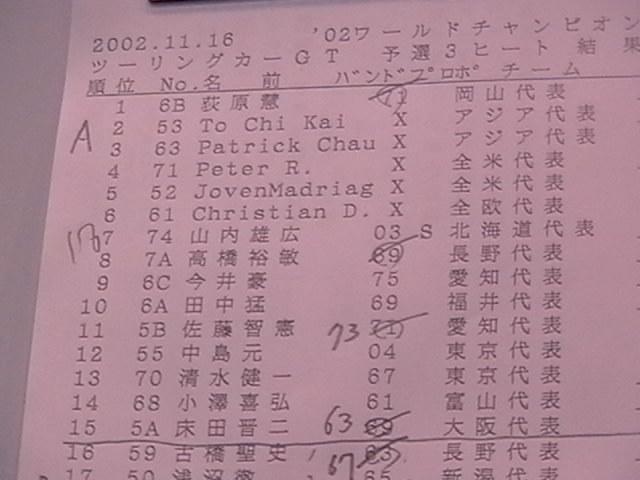 2002.11.16 '02ワールドチャンピオン
ツーリングカーGT 予選3ヒート 結果
順位 No.名 前 バンド プロポ チーム
1 6B 荻原慧 71 岡山代表
A
2 53 To Chi Kai X アジア代表
3 63 Patrick Chau X アジア代表
4 71 Peter R. X 全米代表
5 52 JovenMadriag X 全米代表
6 61 Christian D. X 全欧代表
7 74 山内雄広 03 S 北海道代表
8 7A 高橋裕敏 69 長野代表
9 6C 今井豪 75 愛知代表
10 6A 田中猛 69 福井代表
11 5B 佐藤智憲 73 71 愛知代表
12 55 中島元 04 東京代表
13 70 清水健一 67 東京代表
14 68 小澤喜弘 61 富山代表
15 5A 床田晋二 63 69 大阪代表
16 59 古橋聖史 67 63 長野代表
17 50 浅沼 65 新潟代表